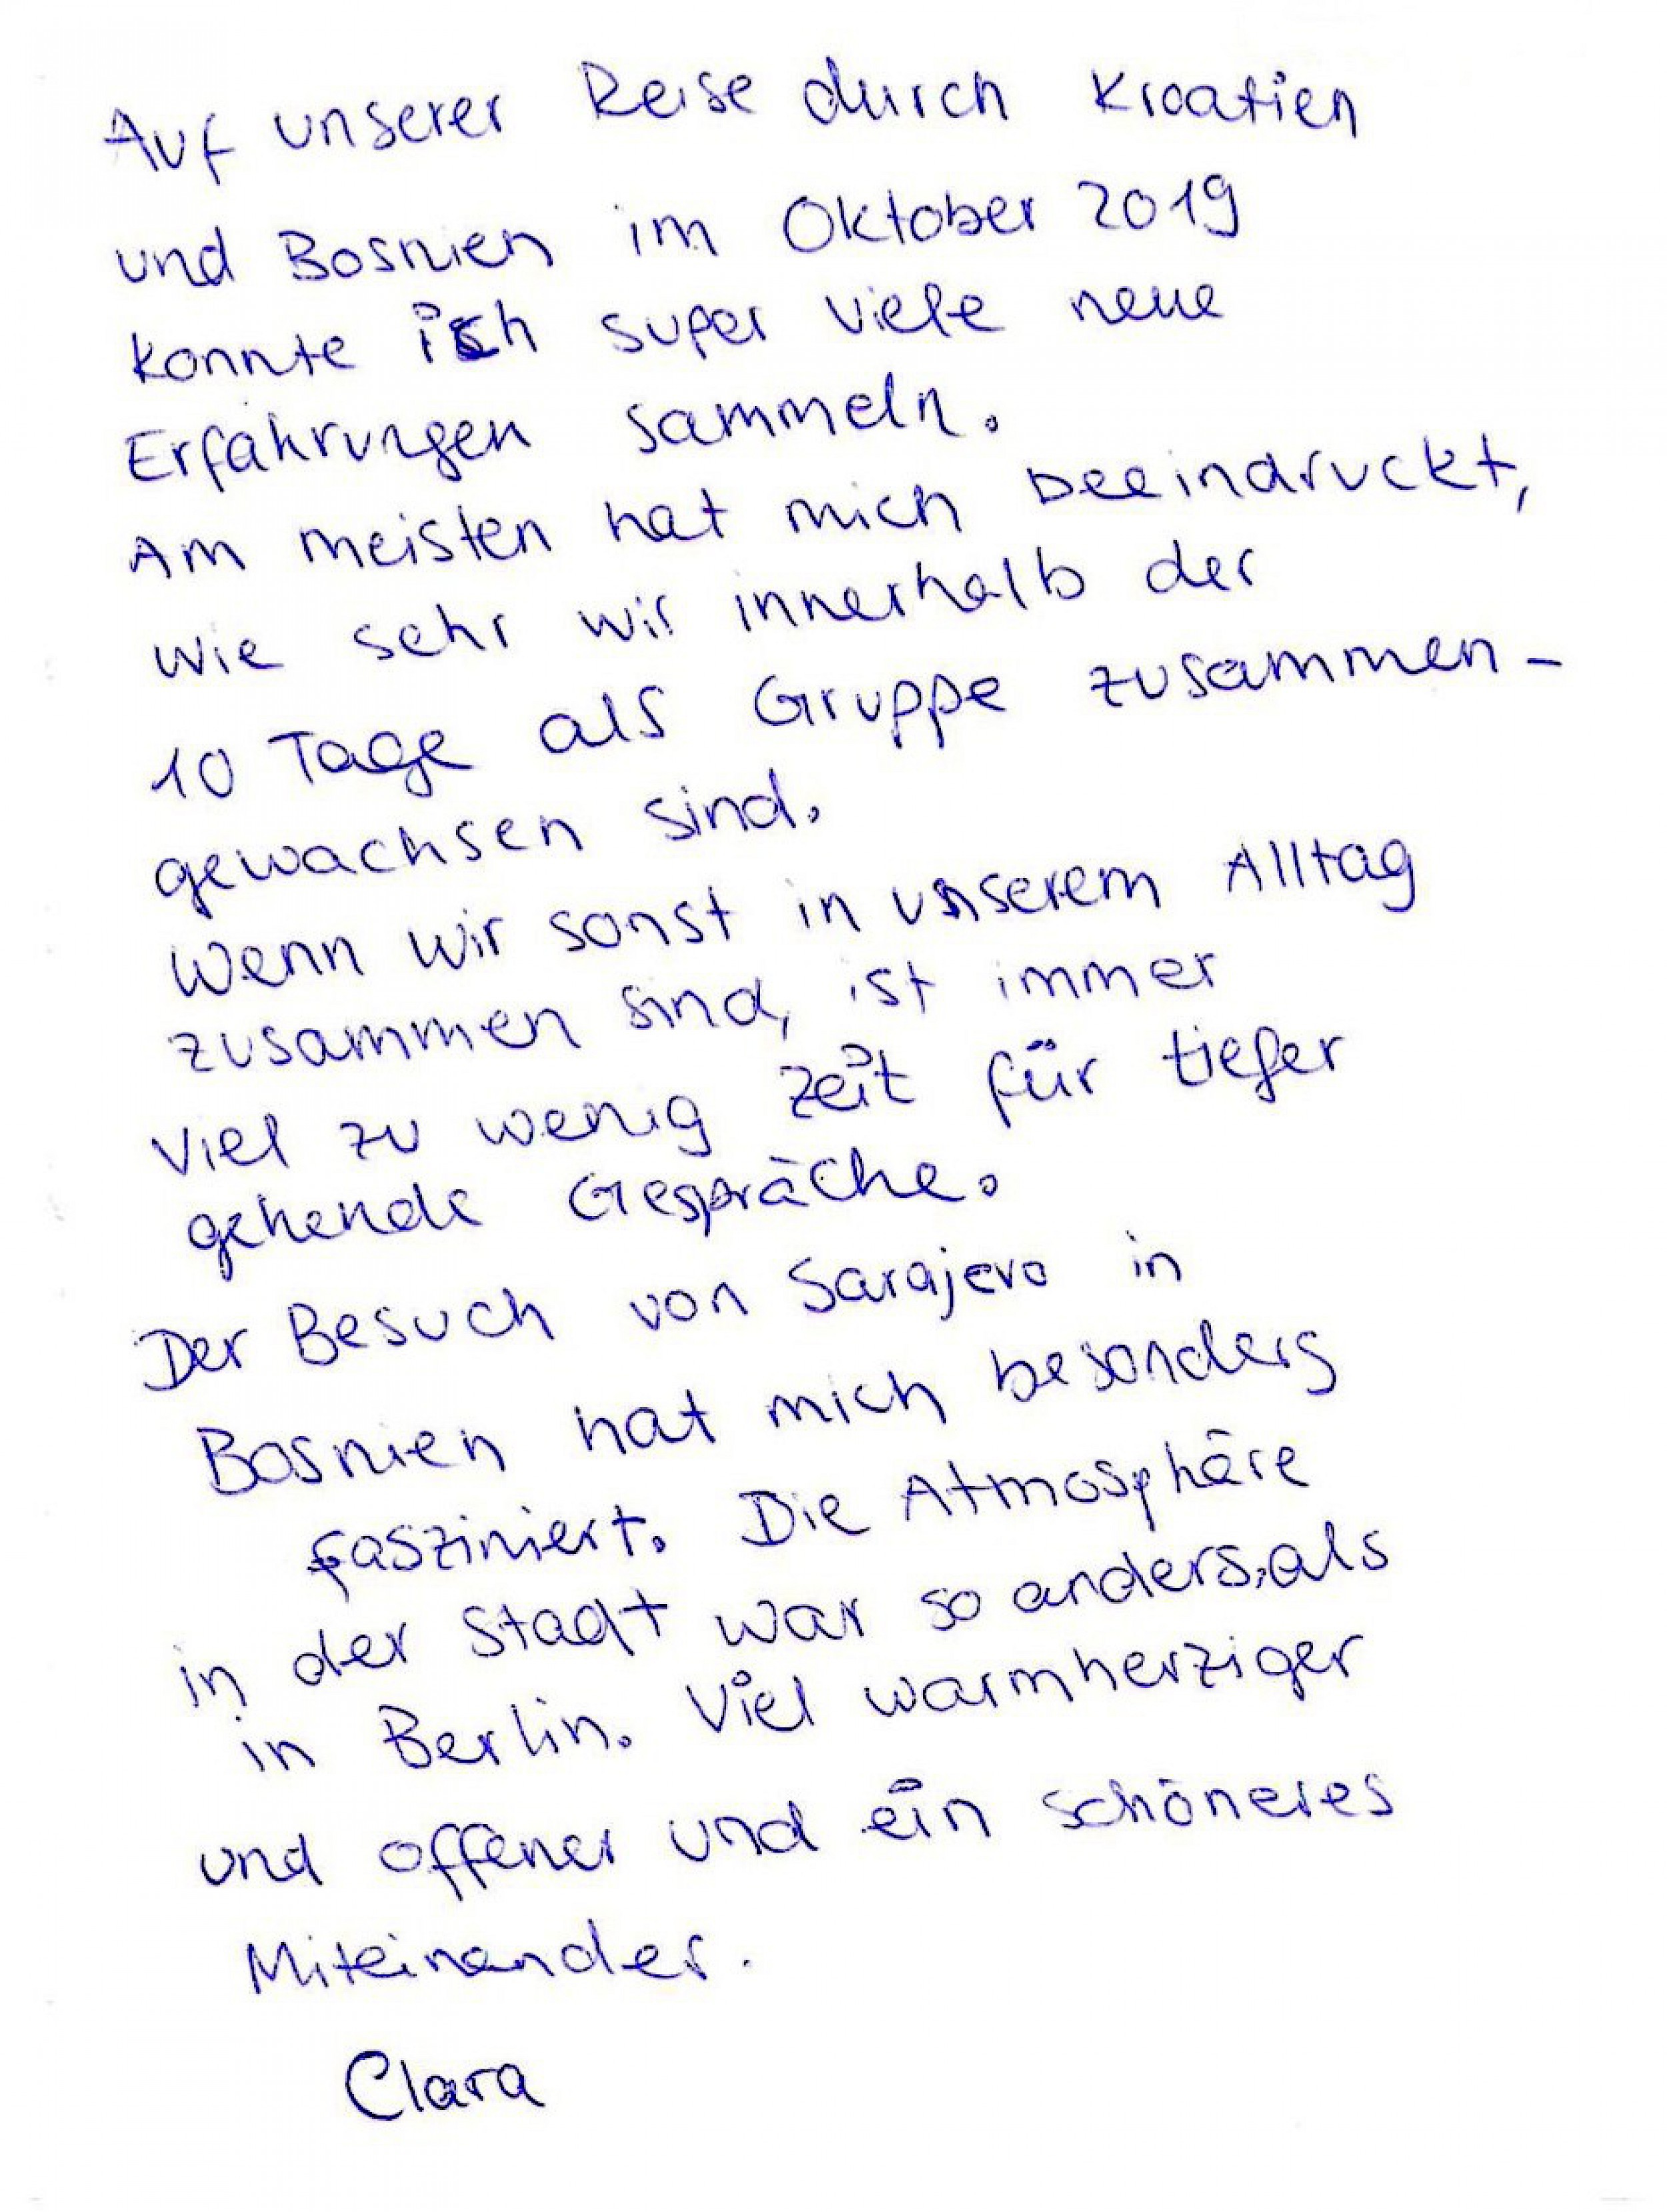 Auf unserer Reise durch Kroatien
und Bosnien im Oktober 2019
konnte ich super viele neue
Erfahrungen sammeln.
Am meisten hat mich beeindruckt,
wie sehr wir innerhalb der
10 Tage als Gruppe zusammen-
gewachsen sind.
Wenn wir sonst in unserem Alltag
zusammen sind, ist immer
viel zu wenig Zeit für tiefer
gehende Gespräche.
Der Besuch von Sarajevo in
Bosnien hat mich besonders
fasziniert. Die Atmosphäre
in der Stadt war so anders, als
in Berlin. Viel warmherziger
und offener und ein schöneres
Miteinander.
Clara